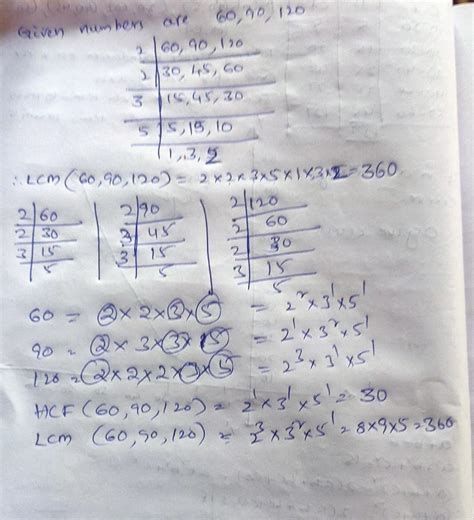 Given numbers are 60, 90, 120
2 | 60, 90, 120
2 | 30, 45, 60
3 | 15, 45, 30
5 | 5, 15, 10
1, 3, 2
∴ LCM (60, 90, 120) = 2×2×3×5×1×3×2 = 360
2 | 60   2 | 90   2 | 120
2 | 30   3 | 45   2 | 60
3 | 15   3 | 15   2 | 30
5   5   3 | 15
5
60 = 2 × 2 × 3 × 5 = 2² × 3¹ × 5¹
90 = 2 × 3 × 3 × 5 = 2¹ × 3² × 5¹
120 = 2 × 2 × 2 × 3 × 5 = 2³ × 3¹ × 5¹
HCF (60, 90, 120) = 2¹ × 3¹ × 5¹ = 30
LCM (60, 90, 120) = 2³ × 3² × 5¹ = 8×9×5 = 360